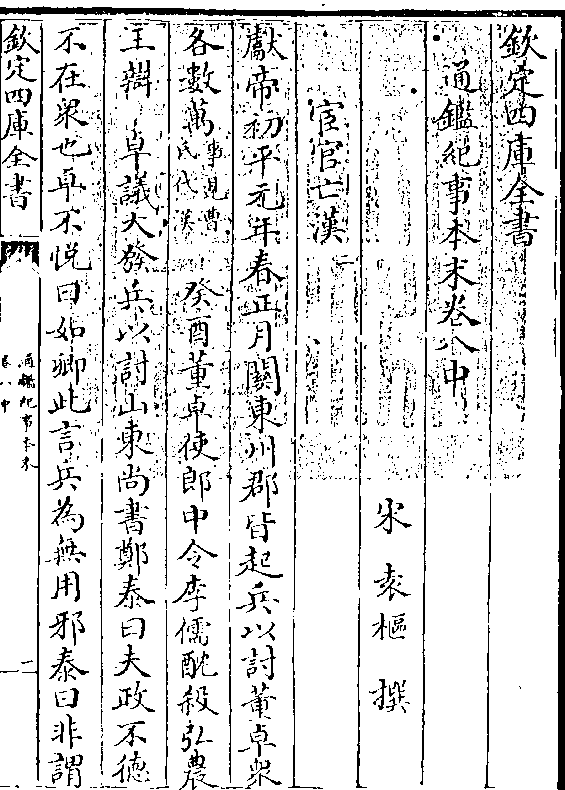 欽定四庫全書
通鑑紀事本末卷八中
宋 袁樞 撰
宦官亡漢
獻帝初平元年春正月關東州郡皆起兵以討董卓衆
各數萬事見曹氏代漢 癸酉董卓使郎中令李儒酖殺弘農
王辯 卓議大發兵以討山東尚書鄭泰曰夫政不德
不在衆也卓不悅曰如卿此言兵為無用邪泰曰非謂
欽定四庫全書
通鑑紀事本末
卷八中
一